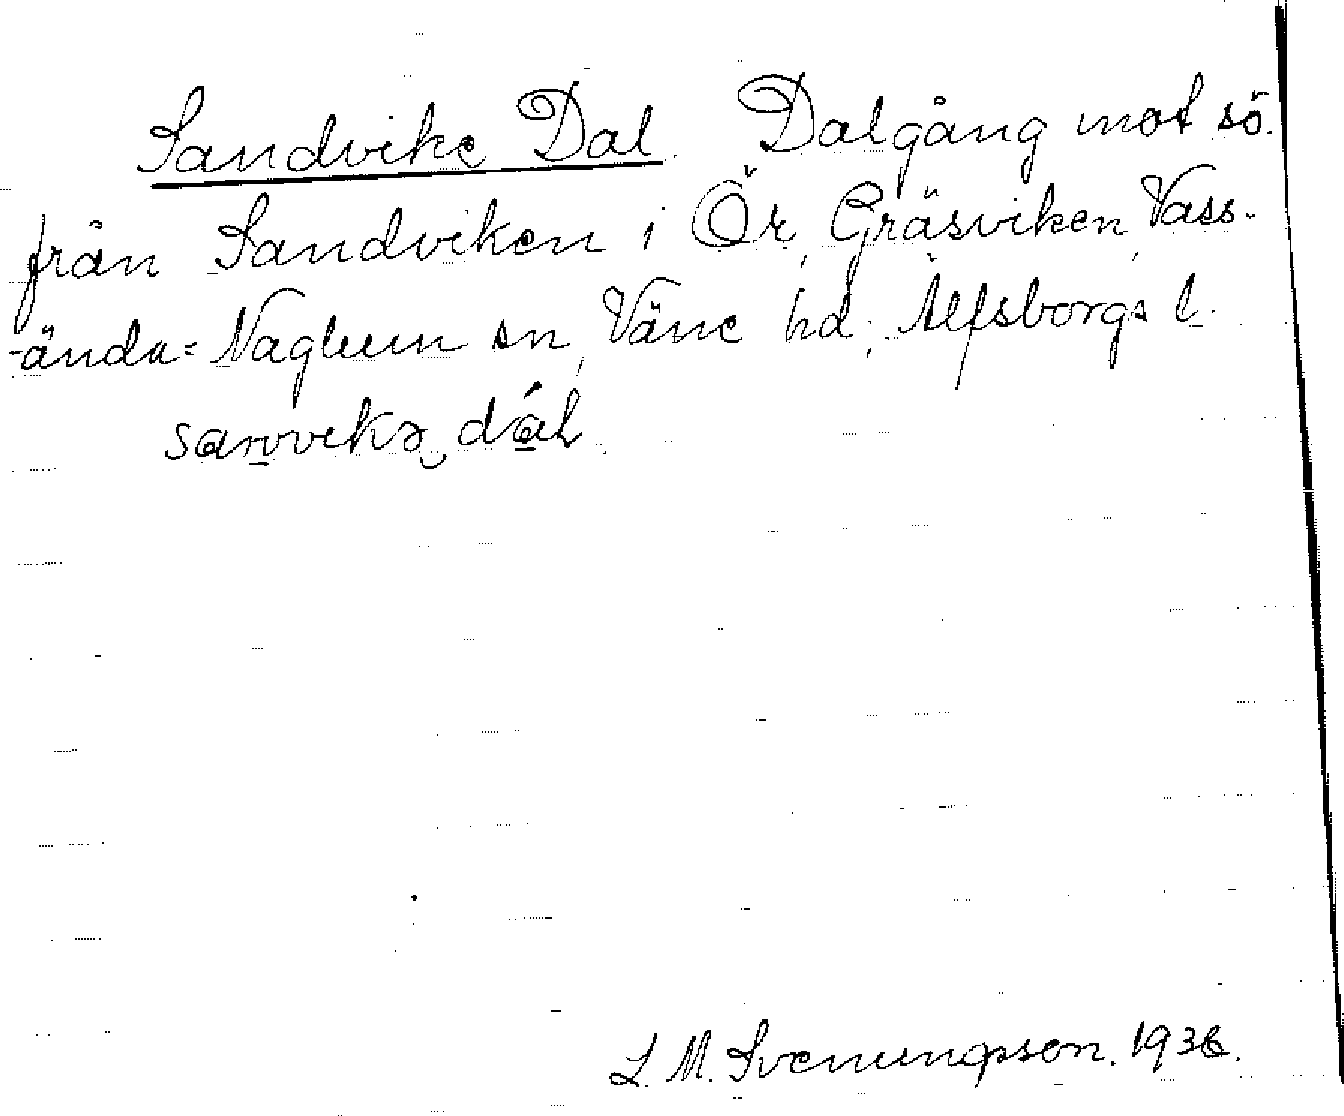 Sandvike Dal. Dalgång mot sö.
från Sandviken i Ör, Gräsviken, Vass-
ända-Naglum sn, Väne hd, Älfsborgs l.
sanvekə dál.
L. M. Svenungsson. 1936.